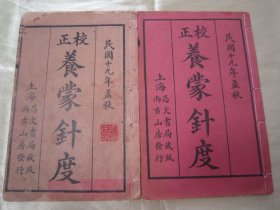 民國十九年孟秋
校正
養蒙針度
上海昌文書局藏版
尚古山房發行
民國十九年孟秋
校正
養蒙針度
上海昌文書局藏版
尚古山房發行